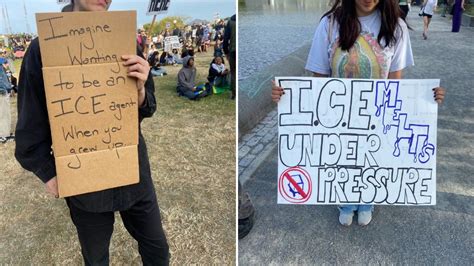 Imagine
Wanting
to be an
ICE agent
When you
grew up
I.C.E. MELTS
UNDER
PRESSURE